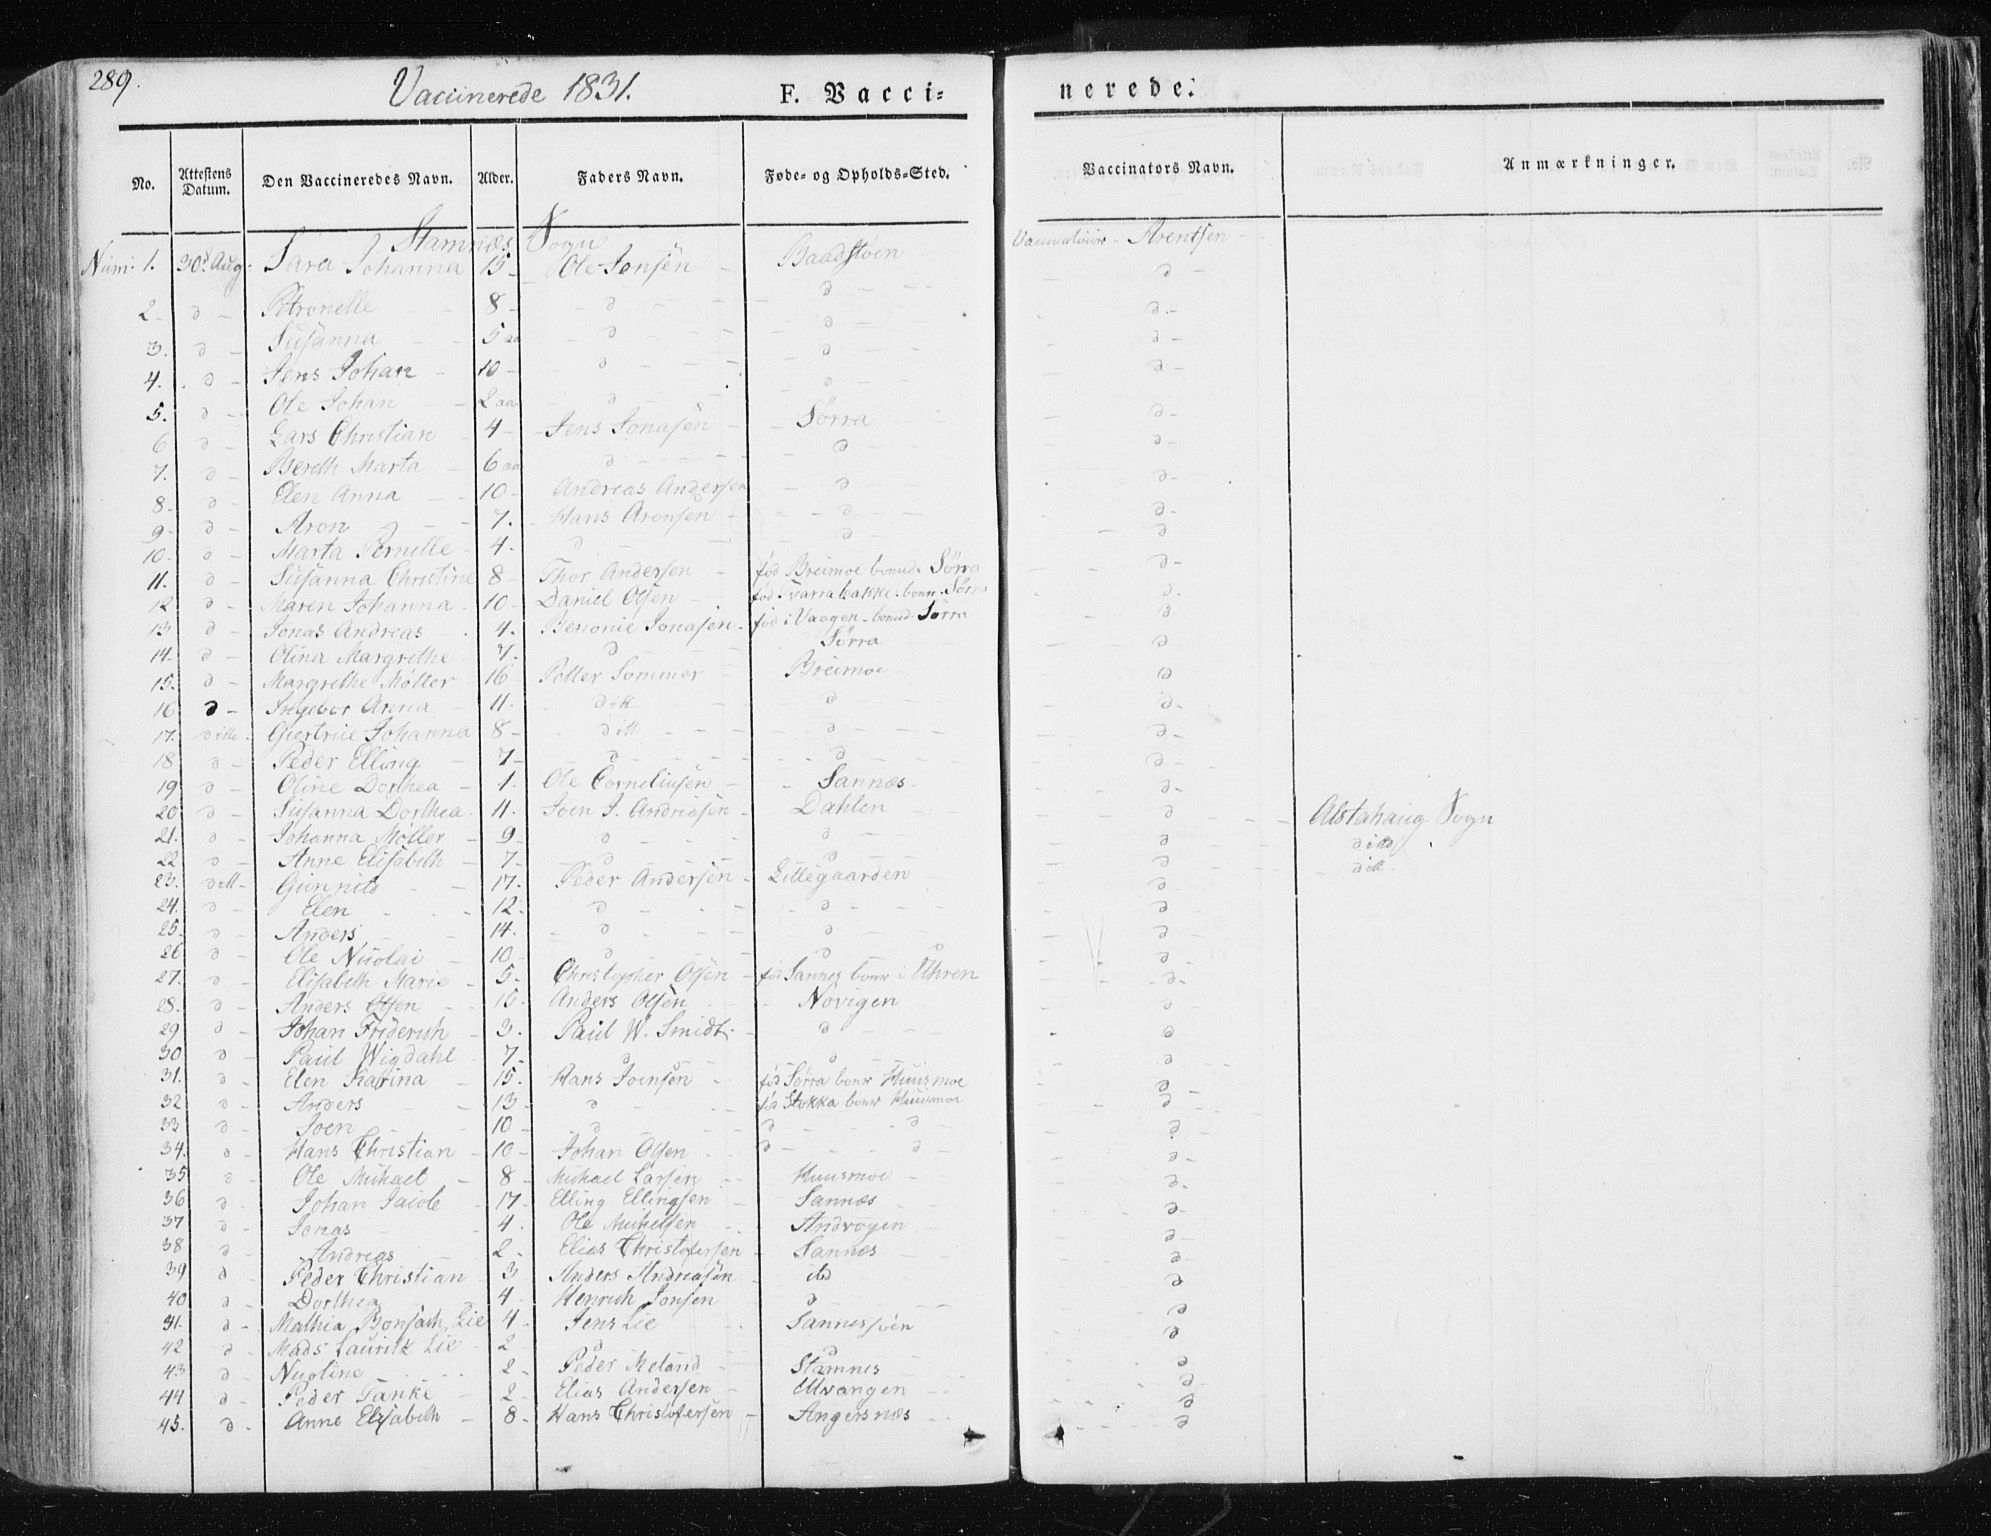 289.
Vaccinerede 1831.
F. Vacci=
nerede.
No. Attestens Datum. Den Vaccineredes Navn. Alder. Faders Navn. Føde- og Opholds-Sted. Vaccinators Navn. Anmærkninger.
Stamnæs Sogn
Num: 1. 30te Aug. Sara Johanna 15 Ole Jensen Baadstoen Vaccinatoier Arentsen
2 d Petronelle 8 d d d
3. d Susanna 5 aa d d d
4. d Jens Johan 10 d d d
5. d Ole Johan 2 aa d d d
6 d Lars Christian 4 Jens Jonasen Sørra d
7. d Bereth Marta 6 aa d d d
8. d Elen Anna 10 Andreas Andersen d d
9 d Aron 7. Hans Aronsen d d
10. d Marta Pernelle 4. d d d
11. d Susanna Christine 8 Thor Andersen fød Breimoe bonud. Sørra d
12 d Maren Johanna 10. Daniel Olsen fød Tvarrabakke. bonr. Sørra d
13 d Jonas Andreas 4. Benonie Jonasen fød i Vaagen bonud. Sørra d
14. d Olina Margrethe 7. d Sørra d
15. d Margrethe Møller 16 Petter Sommer Breimoe d
16 d Ingebor Anna 11. ditt d d
17. ditto. Giertrue Johanna 8 ditt d d
18 d Peder Elling 7 d d d
19 d Oline Dorthea 1. Ole Corneliusen Sannæs d
20 d Susanna Dorthea 11. Joen J. Andreasen Dahlen d Alstahaug Sogn
21. d Johanna Møller 9 d d d ditto
22 d Anne Elisabeth 7 d d d ditt.
23. ditt Gunnild 17. Peder Andersen Lillegaarden d
24. d Elen 12 d d d
25. d Anders 14. d d d
26 d Ole Nicolai 10 d d d
27. d Elisabeth Marie 5. Christopher Olsen fød Sannes bonr i Uhren d
28. d Anders Olsen 10. Anders Olsen Novigen d
29 d Johan Friderich 3. Paul W. Smidt. d d
30 d Paul Wigdahl 7 d d d
31. d Elen Katrina 15. Hans Joensen fød Sørra bonr Huusmoe d
32 d Anders 13 d fød Stokka bonr Huusmoe d
33 d Joen 10 d d d d
34. d Hans Christian 10 Johan Olsen d d d
35 d Ole Michael 8 Michael Larsen Huusmoe d
36 d Johan Jacob 17 Elling Ellingsen Sannæs d
37 d Jonas 4. Ole Michelsen Andvogen d
38 d Andreas 2 Elias Christofersen Sannæs d
39 d Peder Christian 3 Anders Andreasen itd d
40 d Dorthea 4 Henrich Jonsen d d
31. d Mathia Bonsach Lie 4 Jens Lie Sannessøen d
42 d Mads Lauritz Lie 2 d d d
43 d Nicoline 2 Peder Meland Stamnes d
44 d Peder Tanke 2 Elias Andersen Ulvangen d
45. d Anne Elisabeth 8 Hans Christofersen Angersnæs d